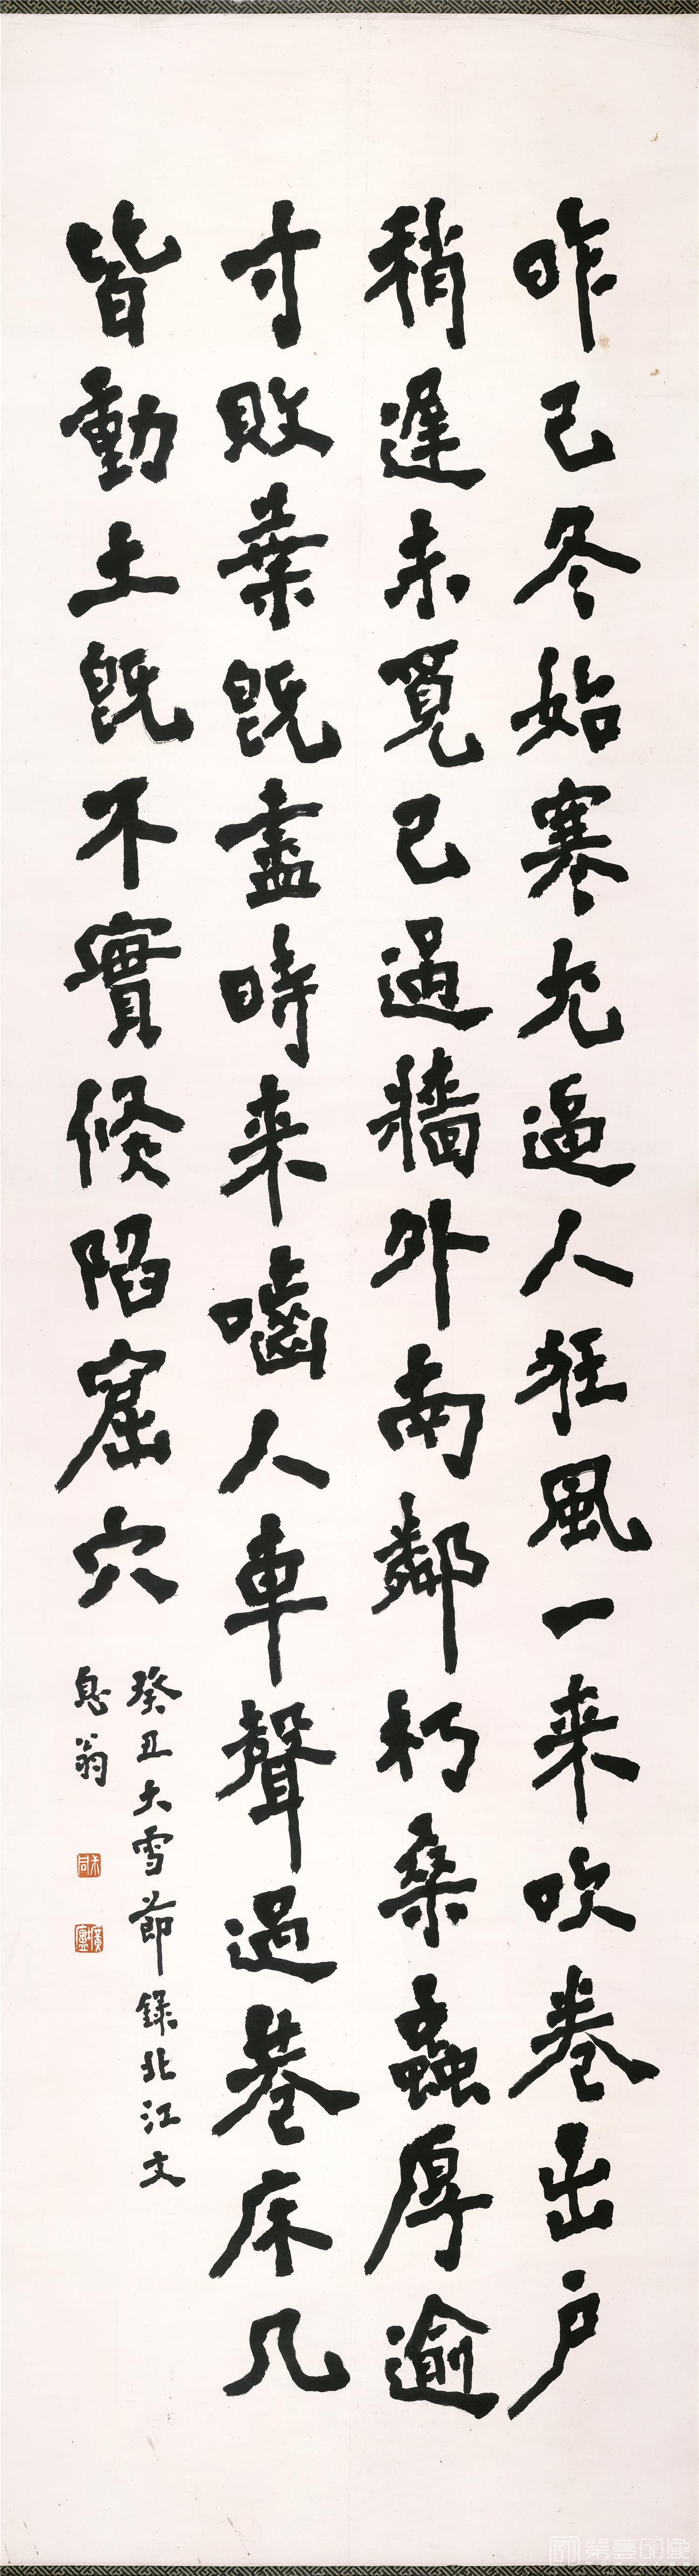 昨已冬始寒尤逼人狂風一来吹卷出户
稍遲未覓已過牆外南鄰朽桑蟲厚逾
寸敗葉既盡時来嚙人車聲過巷床几
皆動土既不實倏陷窟穴
癸丑大雪節録北江文
息翁